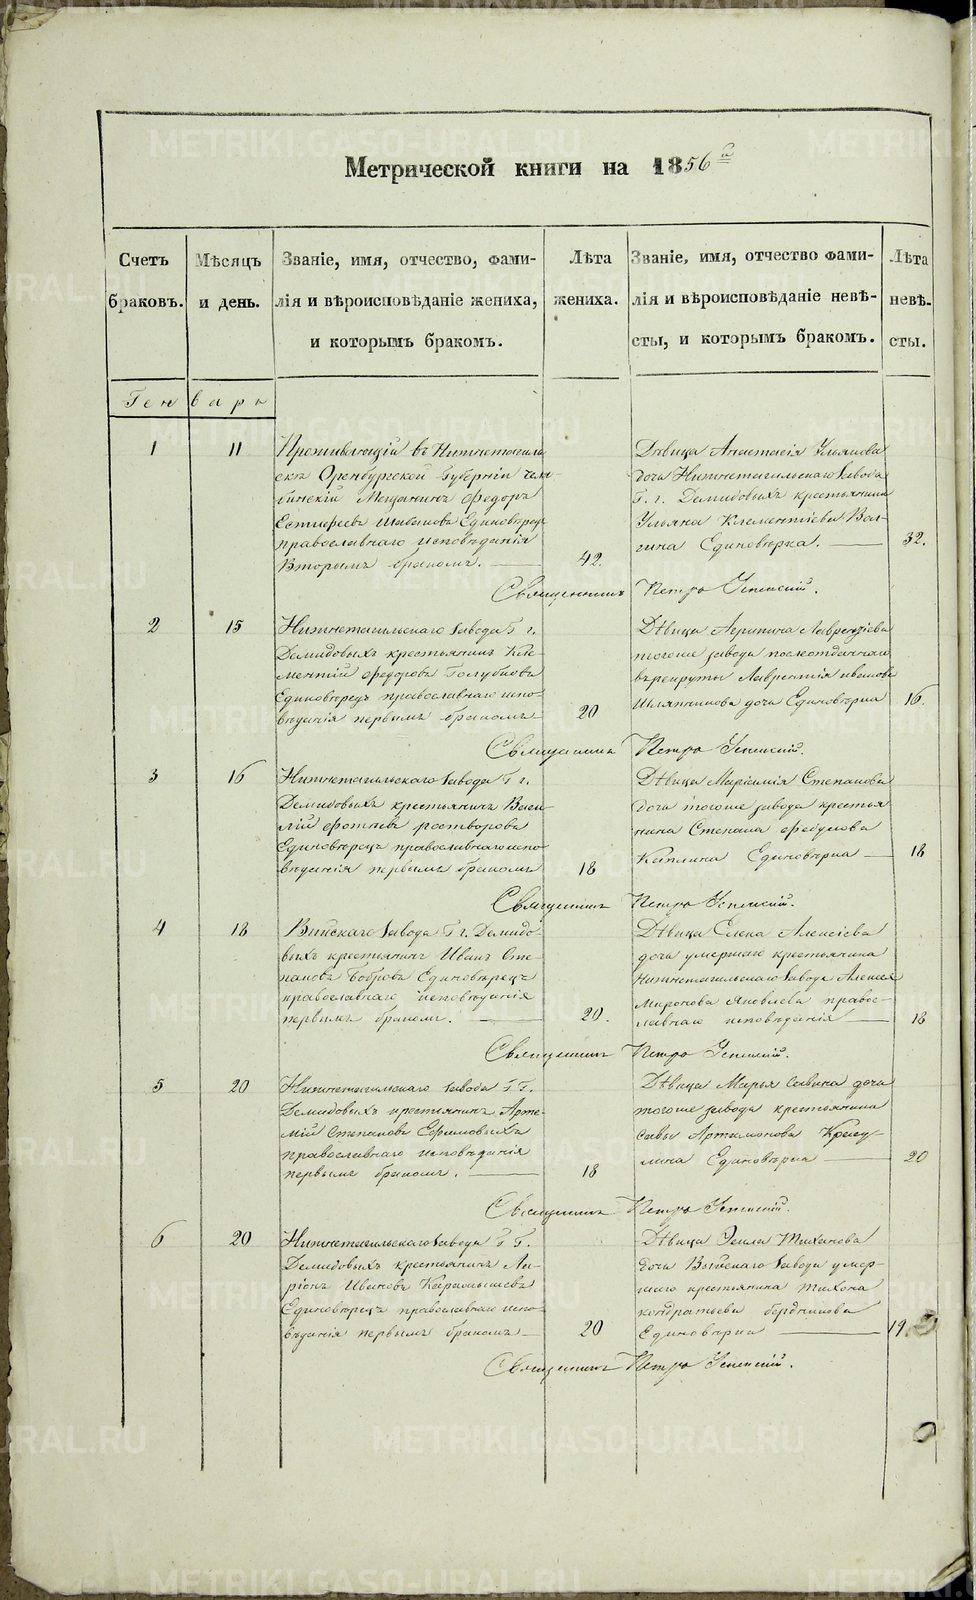 Метрической книги на 1856й
Счетъ браковъ.
Мѣсяцъ и день.
Званіе, имя, отчество, фами-
лія и вѣроисповѣданіе жениха,
и которымъ бракомъ.
Лѣта жениха.
Званіе, имя, отчество фами-
лія и вѣроисповѣданіе невѣ-
сты, и которымъ бракомъ.
Лѣта невѣ-
сты.
Генварь
1
11
Проживающій въ Нижнетагиль
скѣ Оренбургской Губерніи Челя-
бинскій Мещанинъ Федоръ
Естифеевъ Единовѣрецъ
православнаго исповѣданія
Вторымъ бракомъ.
42.
Дѣвица Анастасія Ульянова
дочь Нижнетагильскаго Завода
Г. г. Демидовыхъ крестьянина
Ульяна Клементіева Вол-
гина Единовѣрка.
32.
Священникъ Петръ Успенскій.
2
15
Нижнетагильскаго Завода Г г.
Демидовыхъ крестьянинъ Кле-
ментій Федоровъ Голубковъ
Единовѣрецъ православнаго испо-
вѣданія первымъ бракомъ
20
Дѣвица Агрипина Лаврентіева
тогоже завода
въ рекруты Лаврентія Иванова
Шляпникова дочь Единовѣрка
16.
Священникъ Петръ Успенскій.
3
16
Нижнетагильскаго Завода Г г.
Демидовыхъ крестьянинъ Васи-
лій Фотіевъ Растворовъ
Единовѣрецъ православнаго испо
вѣданія первымъ бракомъ
18
Дѣвица Степанова
дочь тогоже завода крестья
нина Степана Федулова
Каплина Единовѣрка
18
Священникъ Петръ Успенскій.
4
18
Выйскаго Завода Г г. Демидо-
выхъ крестьянинъ Иванъ Сте-
пановъ Бобровъ Единовѣрецъ
православнаго исповѣданія
первымъ бракомъ.
20.
Дѣвица Елена Алексіева
дочь умершаго крестьянина
Нижнетагильскаго Завода Алексея
Миронова Яковлева правос-
лавнаго исповѣданія
18
Священникъ Петръ Успенскій.
5
20
Нижнетагильскаго Завода Г Г.
Демидовыхъ крестьянинъ Арте-
мій Степановъ Ефимовыхъ
православнаго исповѣданія
первымъ бракомъ.
18
Дѣвица Марья Савина дочь
тогоже завода крестьянина
Савы Артамонова
Единовѣрка
20
Священникъ Петръ Успенскій.
6
20
Нижнетагильскаго Завода Г Г.
Демидовыхъ крестьянинъ Ла-
ріонъ Ивановъ Карамышевъ
Единовѣрецъ православнаго испо-
вѣданія первымъ бракомъ
20
Дѣвица Тиханова
дочь Выйскаго Завода умер-
шаго крестьянина Тихона
Кондратьева Бердникова
Единовѣрка
19.
Священникъ Петръ Успенскій.
METRIKI.GASO-URAL.RU